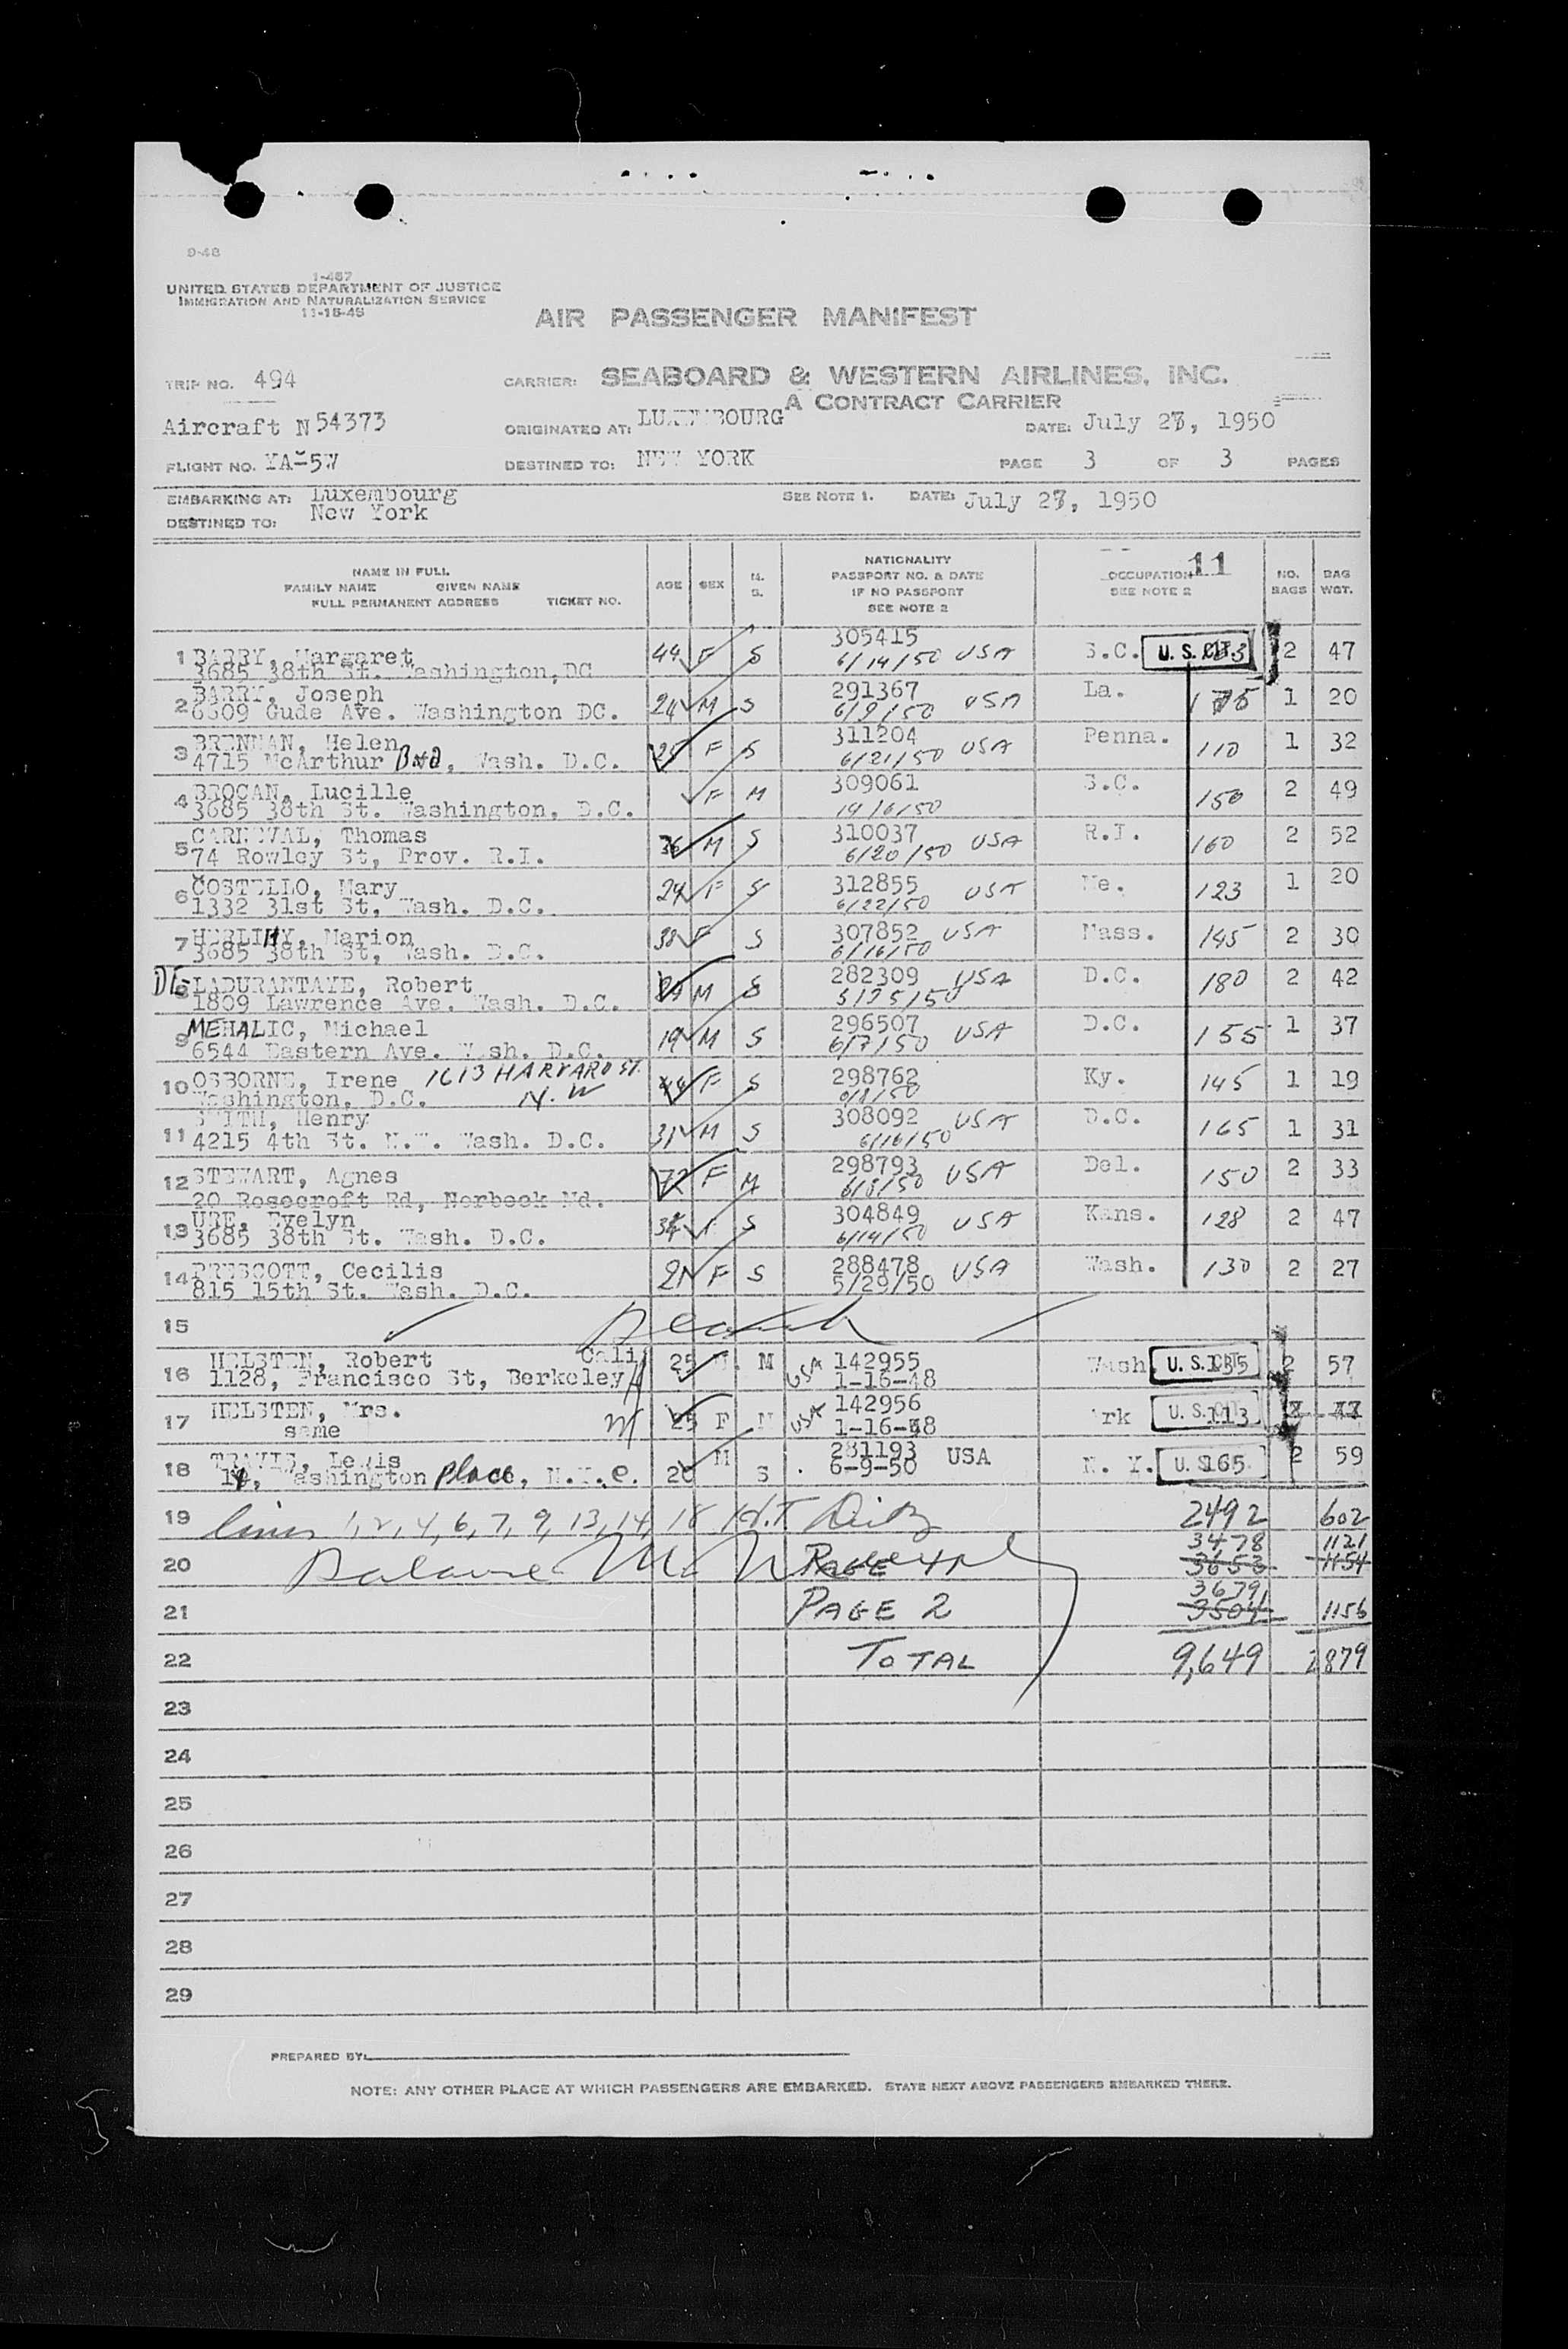 9-48
1-467
UNITED STATES DEPARTMENT OF JUSTICE
IMMIGRATION AND NATURALIZATION SERVICE
11-15-45
AIR PASSENGER MANIFEST
TRIP NO. 494
CARRIER: SEABOARD & WESTERN AIRLINES, INC.
A CONTRACT CARRIER
Aircraft N 54373
ORIGINATED AT: LUXEMBOURG
DATE: July 27, 1950
FLIGHT NO. YA-5W
DESTINED TO: NEW YORK
PAGE 3 OF 3 PAGES
EMBARKING AT: Luxembourg
SEE NOTE 1. DATE: July 27, 1950
DESTINED TO: New York
NAME IN FULL
FAMILY NAME GIVEN NAME
FULL PERMANENT ADDRESS TICKET NO.
AGE SEX M. S.
NATIONALITY
PASSPORT NO. & DATE
IF NO PASSPORT
SEE NOTE 2
OCCUPATION 11
SEE NOTE 2
NO. BAGS
BAG WGT.
1 BARRY, Margaret 44 F S 305415 S.C. U. S. CIT. 2 47
3685 38th St. Washington, DC 6/14/50 USA
2 BARRY, Joseph 24 M S 291367 La. 175 1 20
6309 Gude Ave. Washington DC. 6/9/50 USA
3 BRENNAN, Helen 25 F S 311204 Penna. 110 1 32
4715 McArthur Bvd, Wash. D.C. 6/21/50 USA
4 BROCAN, Lucille F M 309061 S.C. 150 2 49
3685 38th St. Washington, D.C. 19/6/50
5 CARNEVAL, Thomas 36 M S 310037 R.I. 160 2 52
74 Rowley St, Prov. R.I. 6/20/50 USA
6 COSTELLO, Mary 24 F S 312855 Me. 123 1 20
1332 31st St, Wash. D.C. 6/22/50 USA
7 HURLIHY, Marion 38 F S 307852 USA Mass. 145 2 30
3685 38th St, Wash. D.C. 6/16/50
8 DE LADURANTAYE, Robert M S 282309 USA D.C. 180 2 42
1809 Lawrence Ave. Wash. D.C. 5/25/50
9 MEHALIC, Michael 19 M S 296507 USA D.C. 155 1 37
6544 Eastern Ave. Wash. D.C. 6/7/50
10 OSBORNE, Irene 1613 HARVARD ST. 44 F S 298762 Ky. 145 1 19
Washington, D.C. N.W
11 SMITH, Henry 31 M S 308092 USA D.C. 165 1 31
4215 4th St. N.W. Wash. D.C. 6/16/50
12 STEWART, Agnes 72 F M 298793 USA Del. 150 2 33
20 Rosecroft Rd, Norbeck Md. 6/8/50
13 URE, Evelyn F S 304849 USA Kans. 128 2 47
3685 38th St. Wash. D.C. 6/14/50
14 PRESCOTT, Cecilis 21 F S 288478 USA Wash. 130 2 27
815 15th St. Wash. D.C. 5/29/50
15
16 HELSTEN, Robert Cali 25 M. M USA 142955 Wash U. S. CIT. 135 2 57
1128, Francisco St, Berkeley 1-16-48
17 HELSTEN, Mrs. 25 F M USA 142956 Ark U. S. CIT. 113
same 1-16-48
18 TRAVIS, Lewis 20 M S 281193 USA N. Y. U. S. 165 2 59
Washington Place, N.Y.C. 6-9-50
19 lines 1, 2, 4, 6, 7, 9, 13, 14, 18 2492 602
3478 1121
20 Balance PAGE 1 3653 1154
3679
21 PAGE 2 3504 1156
22 TOTAL 9,649 2879
23
24
25
26
27
28
29
PREPARED BY:
NOTE: ANY OTHER PLACE AT WHICH PASSENGERS ARE EMBARKED. STATE NEXT ABOVE PASSENGERS EMBARKED THERE.